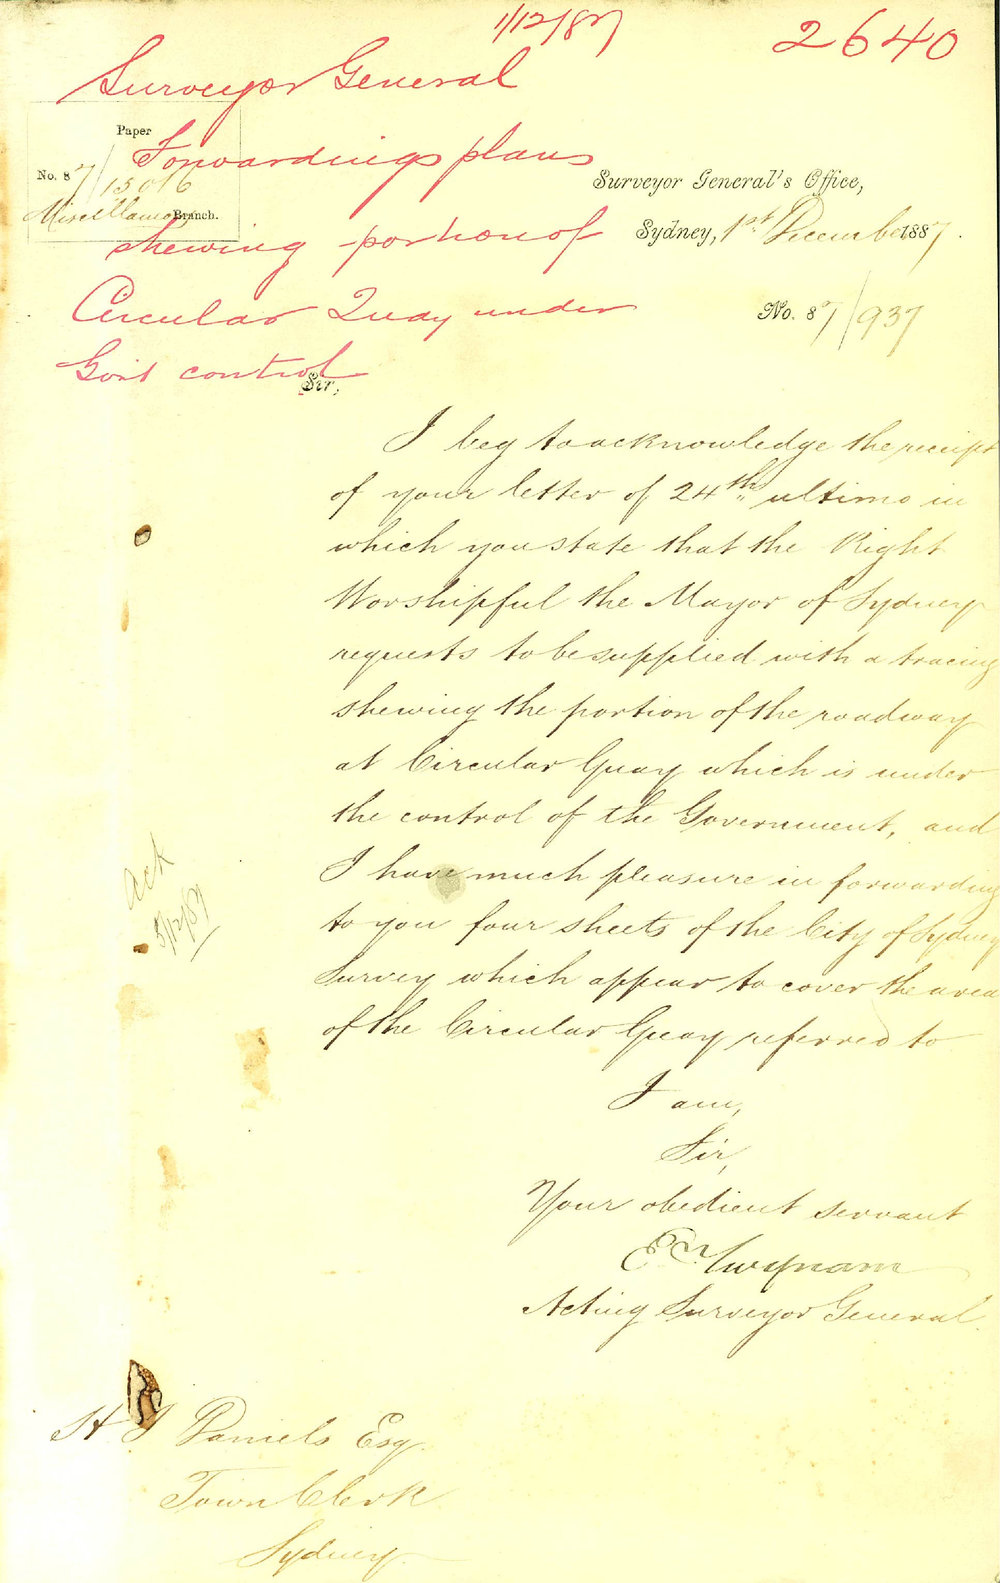 1/12/87
2640
Surveyor General
Paper
Forwardings plans
No. 87/15016
Surveyor General's Office,
Miscellaneous Branch.
Sydney, 1st December 1887.
shewing portion of
Circular Quay under
No. 87/937
Govt control
Sir,
I beg to acknowledge the receipt
of your letter of 24th ultimo in
which you state that the Right
Worshipful the Mayor of Sydney
requests to be supplied with a tracing
shewing the portion of the roadway
at Circular Quay which is under
the control of the Government, and
I have much pleasure in forwarding
to you four sheets of the City of Sydney
Survey which appear to cover the area
of the Circular Quay referred to
Ack
5/12/87
I am,
Sir,
Your obedient servant
E Twynam
Acting Surveyor General.
H J Daniels Esq.
Town Clerk
Sydney.